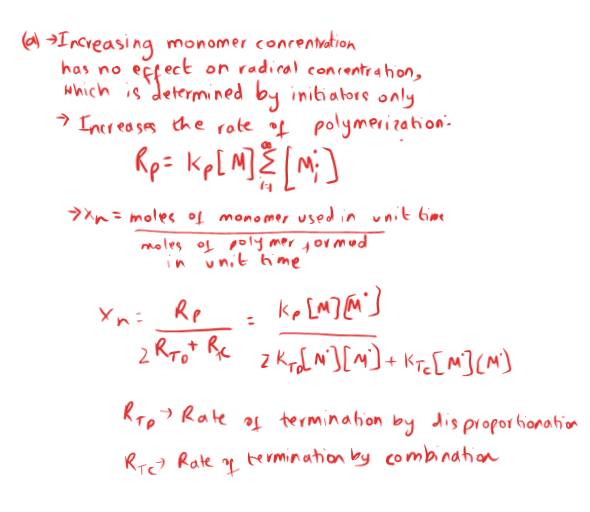 (a) → Increasing monomer concentration
has no effect on radical concentration,
which is determined by initiators only
→ Increases the rate of polymerization.
Rp = Kp[M] ∑_{i=1}^{∞} [Mi˙]
→ Xn = moles of monomer used in unit time
moles of polymer formed
in unit time
Xn = Rp / (2 RTD + RTC) = Kp[M][M˙] / (2 KTD[M˙][M˙] + KTC[M˙][M˙])
RTD → Rate of termination by disproportionation
RTC → Rate of termination by combination